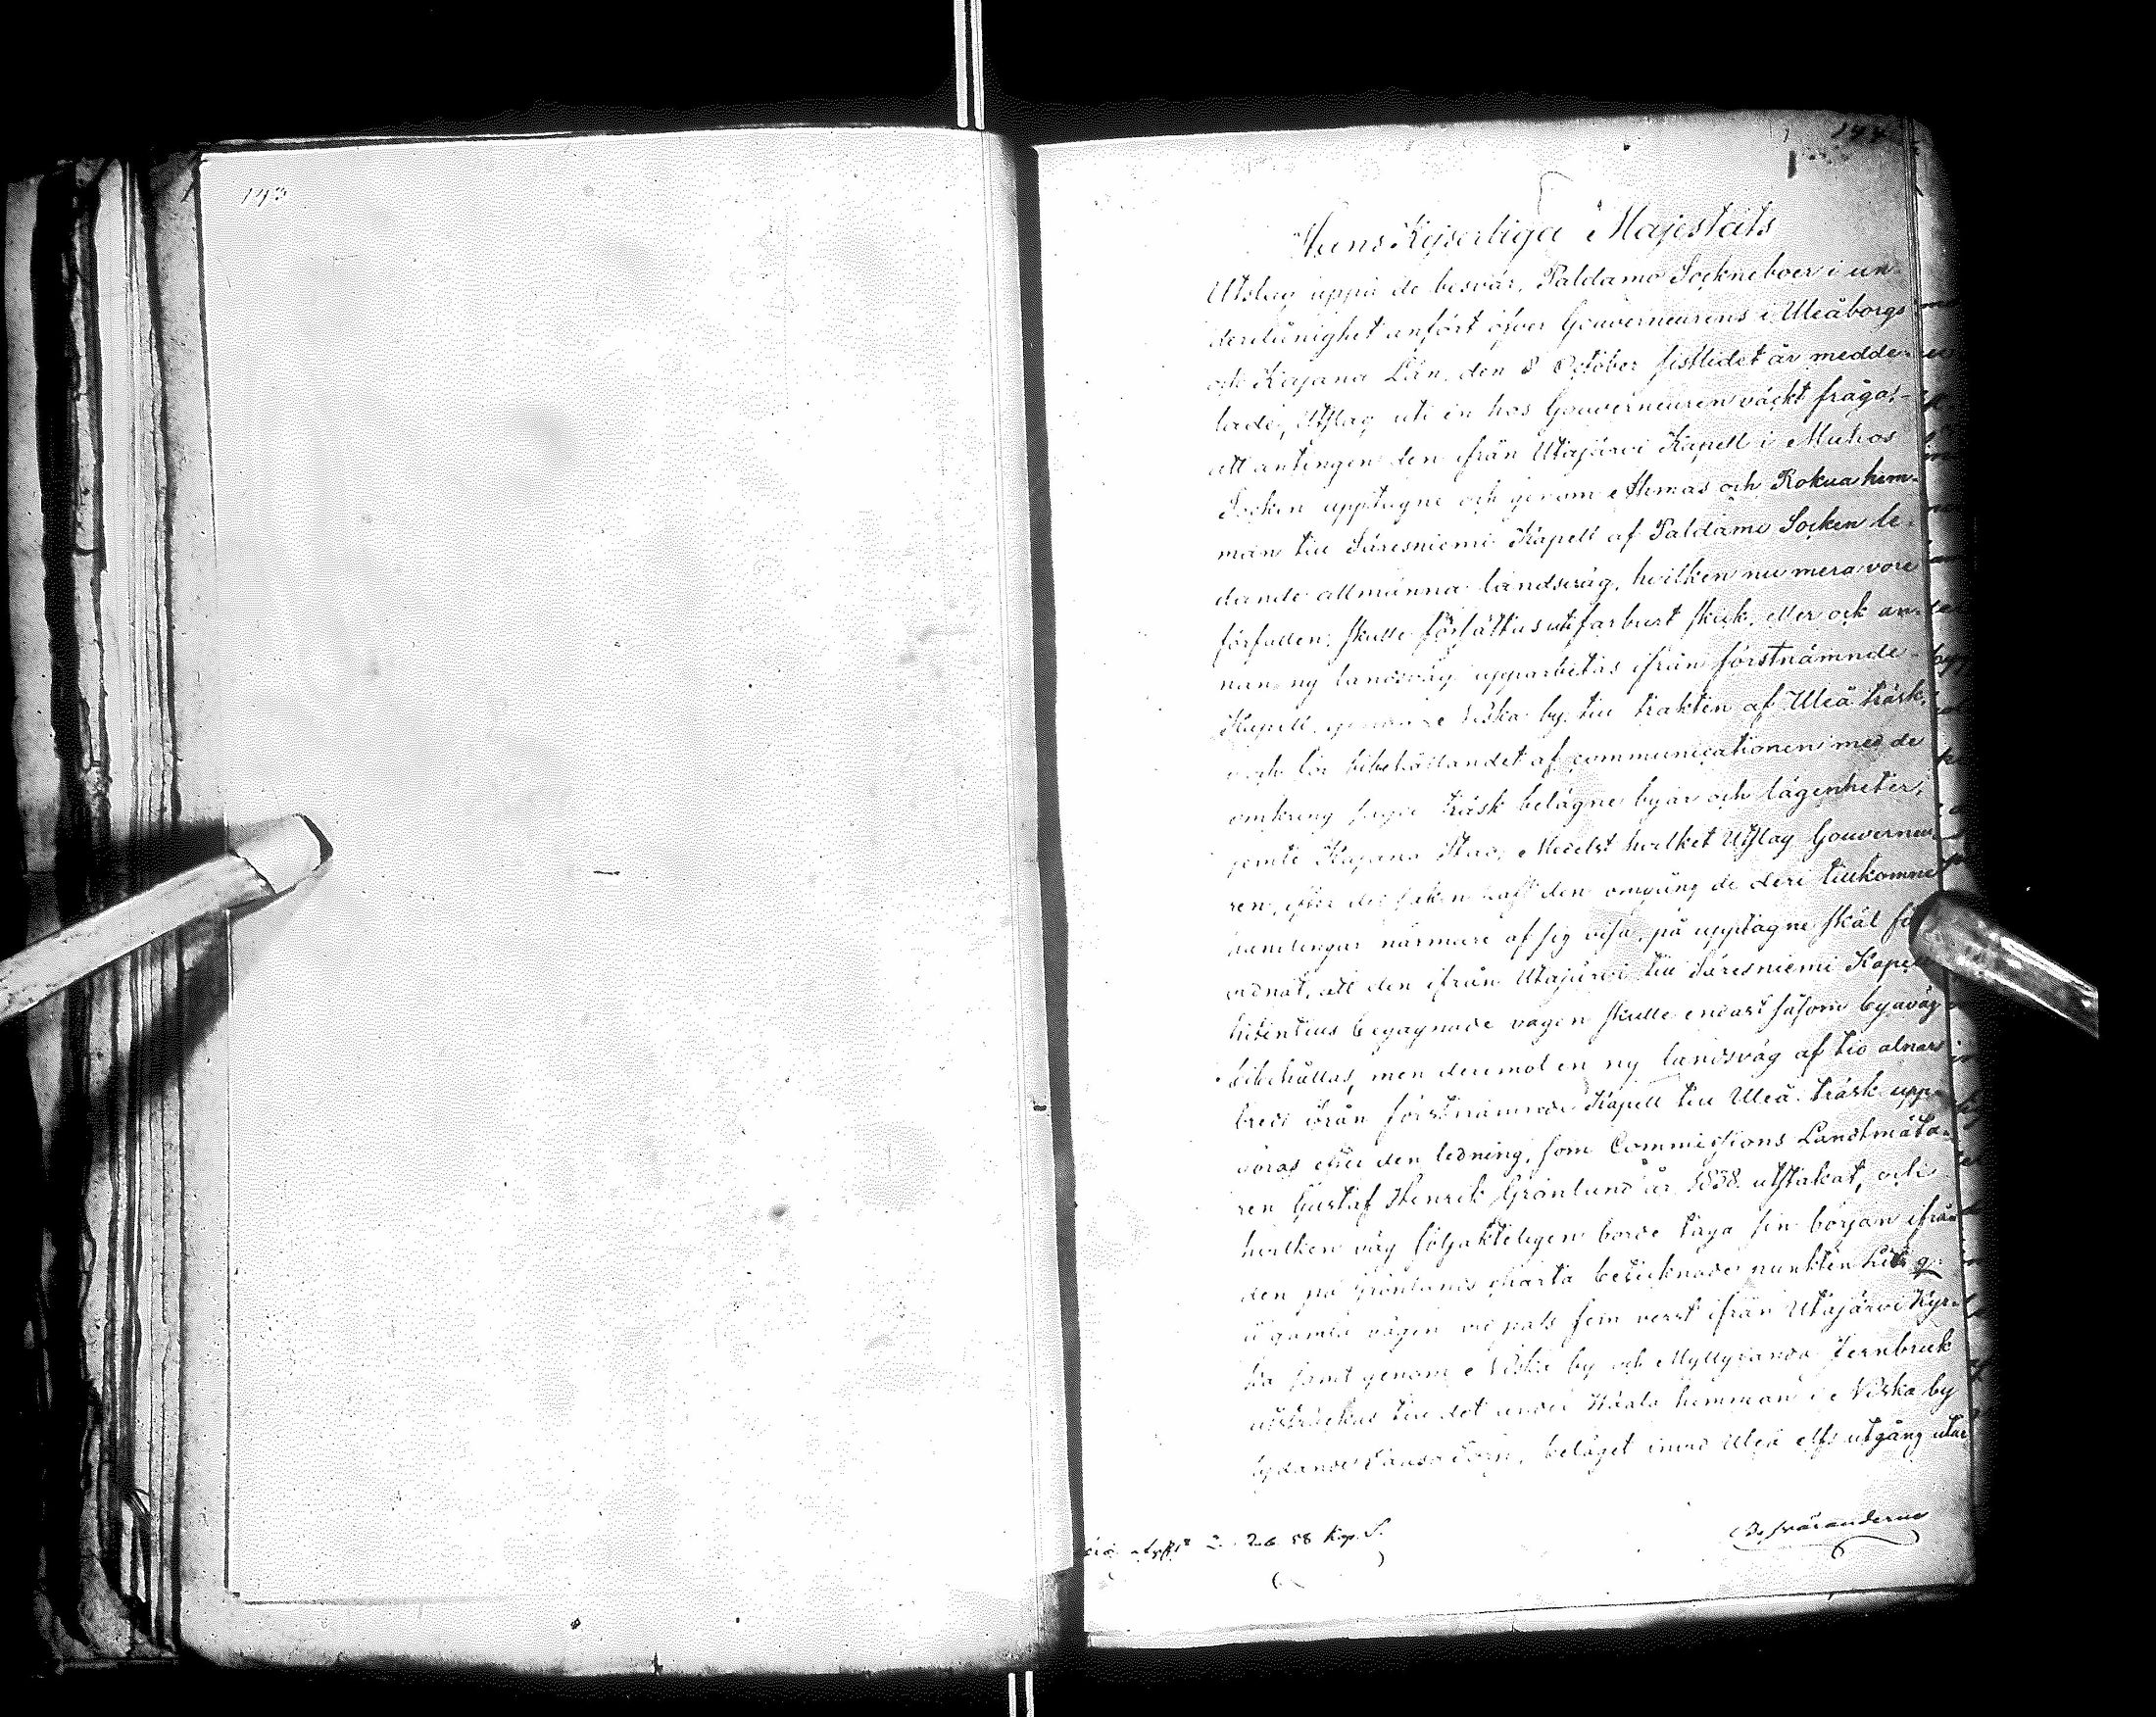 143
144
Hans Kejserliga Majestäts
Utslag uppå de besvär, Paldamo Sockneboer i un-
derdånighet anfört öfver Gouverneurens i Uleåborgs
och Kajana Län, den 8 October sistlidet år medde-
lade, Utslag uti en hos Gouverneuren väckt fråga,
att antingen den ifrån Utajärvi Kapell i Muhos
Socken upptagne och genom Ahmas och Rokua hem-
man till Säresniemi Kapell af Paldamo Socken le-
dande allmänna landsväg, hvilken nu mera vore
förfallen, skulle försättas uti farbart skick, eller ock an-
nan ny landsväg upparbetas ifrån förstnämnde
Kapell, genom Niska by, till trakten af Uleå träsk,
och för bibehållandet af communicationen med de
omkring sagde träsk belägne byar och lägenheter,
jemte Kajana Stad; Medelst hvilket Utslag Gouverneu-
ren, efter det saken haft den omgång de deri tillkomne
handlingar närmare af sig visa, på upptagne skäl för-
ordnat, att den ifrån Utajärvi till Säresniemi Kapell
hitintills begagnade vägen skulle endast såsom byaväg
bibehållas, men deremot en ny landsväg af tio alnars
bredd ifrån förstnämnde Kapell till Uleå träsk upp-
köras efter den ledning, som Commissions Landtmäta-
ren Gustaf Henrik Grönlund år 1838 utstakat, och
hvilken väg följakteligen borde taga sin början ifrån
den på Grönlunds charta betecknade punkten Litt. q.
å gamla vägen vid pass fem verst ifrån Utajärvi Kyr-
ka samt genom Niska by och Myllyranda Jernbruk
utsträckas till det under Wäälä hemman i Niska by
lydande Torp, beläget invid Uleå elfs utgång utur
Besväranderne
2 Rub 58 Kop. S.